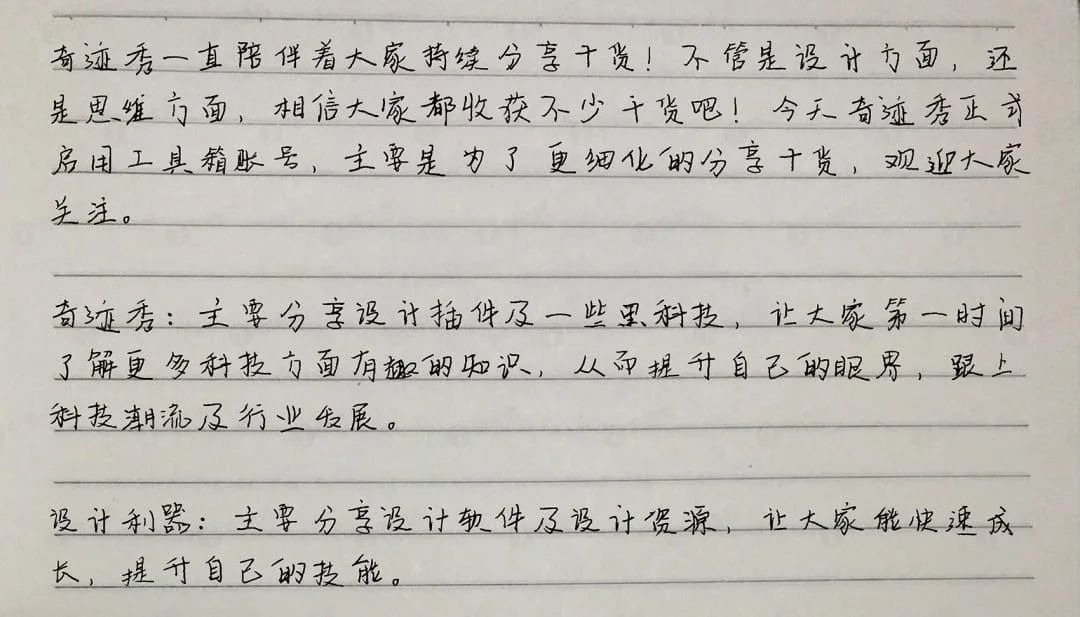 奇迹秀一直陪伴着大家持续分享干货！不管是设计方面，还
是思维方面，相信大家都收获不少干货吧！今天奇迹秀正式
启用工具箱账号，主要是为了更细化的分享干货，观迎大家
关注。
奇迹秀：主要分享设计插件及一些黑科技，让大家第一时间
了解更多科技方面有趣的知识，从而提升自己的眼界，跟上
科技潮流及行业发展。
设计利器：主要分享设计软件及设计资源，让大家能快速成
长，提升自己的技能。